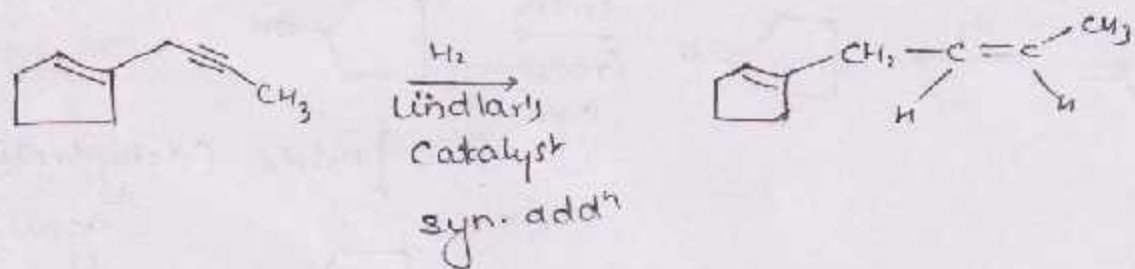 H₂
Lindlar's
Catalyst
syn. addⁿ
CH₃
CH₂ — C = C
CH₃
H
H